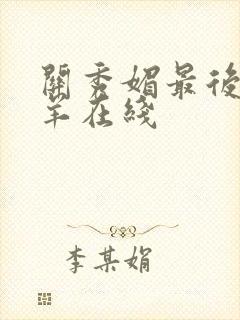 關秀媚最後
羊在綫
李某娟